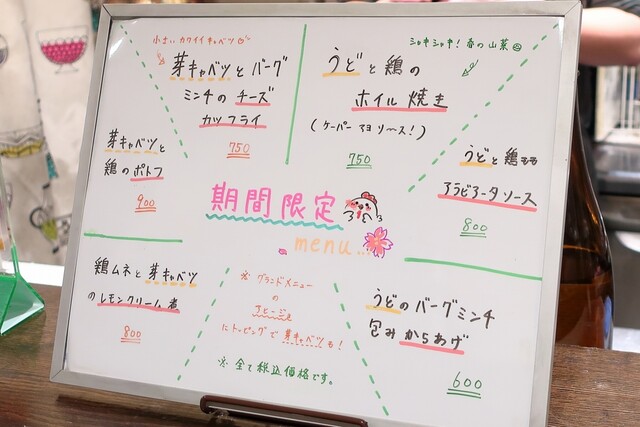 小さい カワイイ キャベツ♡
芽キャベツとバーグ
ミンチの チーズ
カツフライ
750
シャキシャキ! 春の山菜
うどと鶏の
ホイル焼き
(ケーパー マヨ ソース!)
750
芽キャベツと
鶏のポトフ
900
うどと鶏モモ
アラビアータソース
800
期間限定
menu...
鶏ムネと芽キャベツ
のレモンクリーム煮
800
※ グランドメニュー
の
アヒージョ
にトッピングで芽キャベツも!
※ 全て税込価格です。
うどのバーグミンチ
包みからあげ
600